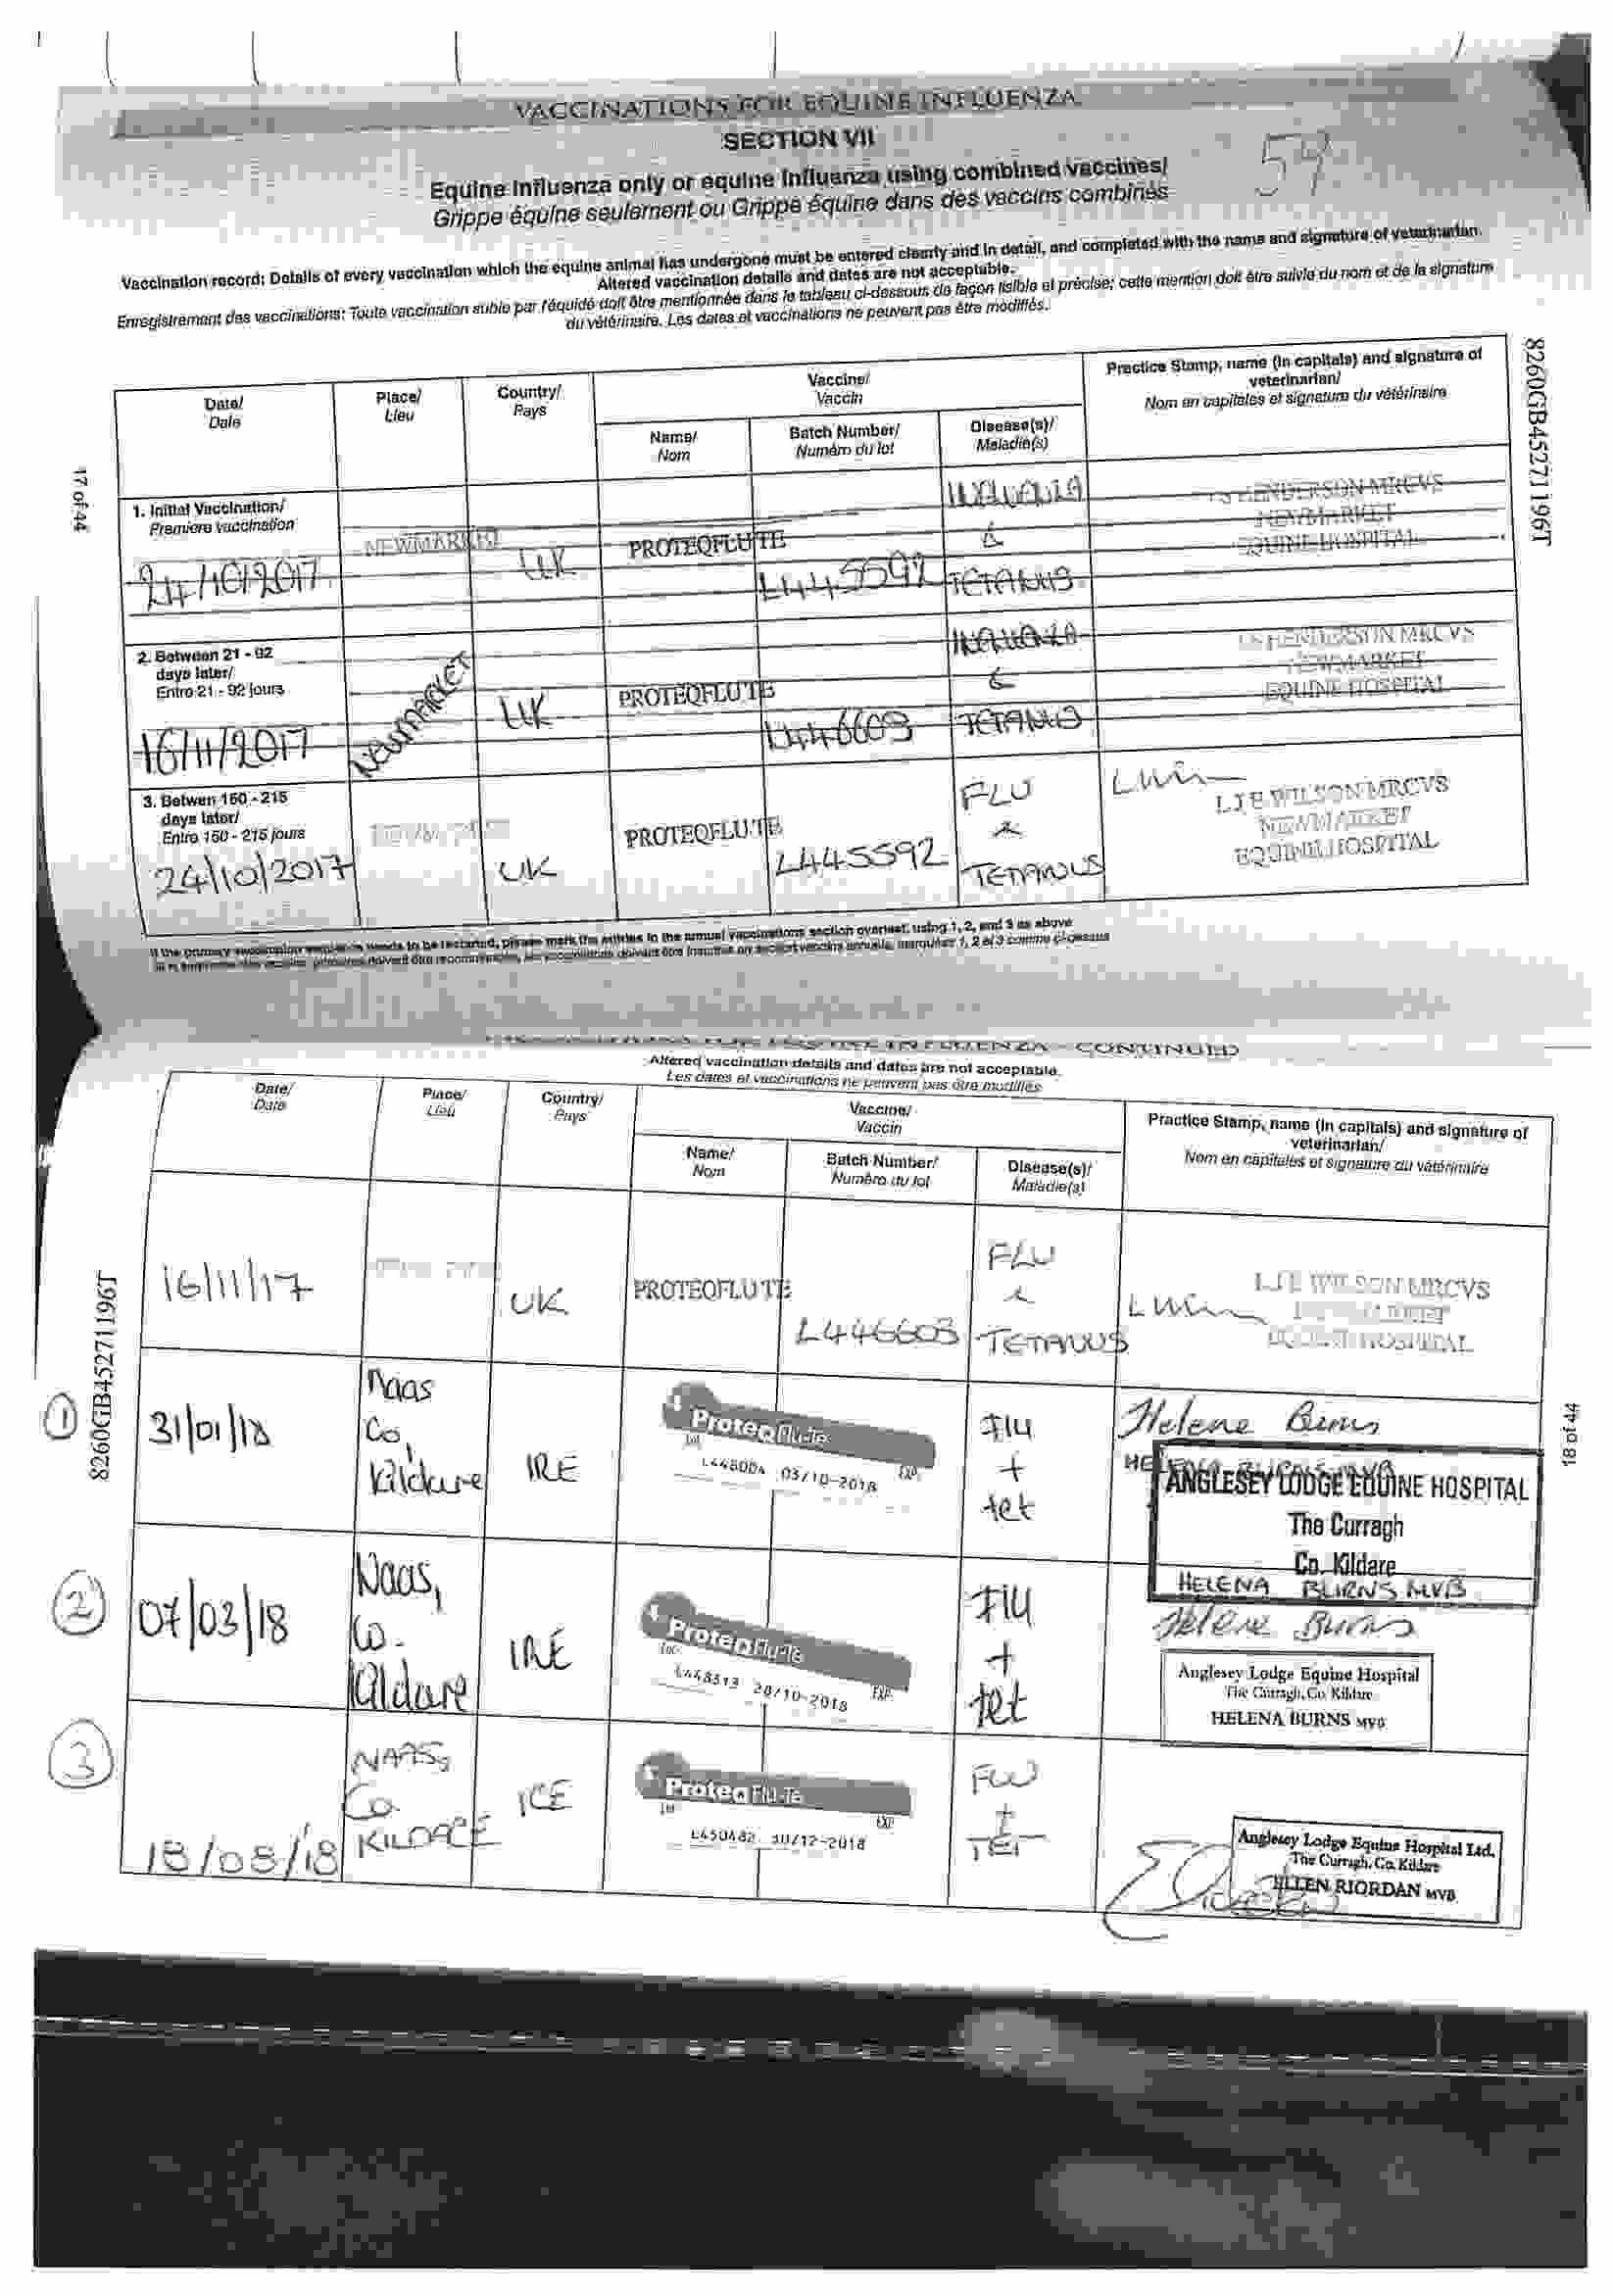 VACCINATIONS FOR EQUINE INFLUENZA
SECTION VII
54
Equine Influenza only or equine Influenza using combined vaccines/
Grippe équine seulement ou Grippe équine dans des vaccins combinés
Vaccination record: Details of every vaccination which the equine animal has undergone must be entered clearly and in detail, and completed with the name and signature of veterinarian.
Altered vaccination details and dates are not acceptable.
Enregistrement des vaccinations: Toute vaccination subie par l'équidé doit être mentionnée dans le tableau ci-dessous de façon lisible et précise; cette mention doit être suivie du nom et de la signature
du vétérinaire. Les dates et vaccinations ne peuvent pas être modifiés.
17 of 44
8260GB45271196T
Date/
Date
Place/
Lieu
Country/
Pays
Vaccine/
Vaccin
Name/
Nom
Batch Number/
Numéro du lot
Disease(s)/
Maladie(s)
Practice Stamp, name (in capitals) and signature of
veterinarian/
Nom en capitales et signature du vétérinaire
1. Initial Vaccination/
Premiere vaccination
24/10/2017
NEWMARKET
UK
PROTEQFLU TE
L445592
INFLUENZA
&
TETANUS
HENDERSON MRCVS
NEWMARKET
EQUINE HOSPITAL
2. Between 21 - 92
days later/
Entre 21 - 92 jours
16/11/2017
NEWMARKET
UK
PROTEQFLU TE
L446603
INFLUENZA
&
TETANUS
HENDERSON MRCVS
NEWMARKET
EQUINE HOSPITAL
3. Betwen 150 - 215
days later/
Entre 150 - 215 jours
24/10/2017
UK
PROTEQFLU TE
L445592
FLU
&
TETANUS
LJE WILSON MRCVS
NEWMARKET
EQUINE HOSPITAL
If the primary vaccination sequence needs to be restarted, please mark the entries in the annual vaccinations section overleaf, using 1, 2, and 3 as above
INFLUENZA - CONTINUED
Altered vaccination details and dates are not acceptable.
Les dates et vaccinations ne peuvent pas être modifiés
8260GB45271196T
18 of 44
Date/
Date
Place/
Lieu
Country/
Pays
Vaccine/
Vaccin
Name/
Nom
Batch Number/
Numéro du lot
Disease(s)/
Maladie(s)
Practice Stamp, name (in capitals) and signature of
veterinarian/
Nom en capitales et signature du vétérinaire
16/11/17
UK
PROTEQFLU TE
L446603
FLU
&
TETANUS
LJE WILSON MRCVS
EQUINE HOSPITAL
1
31/01/18
Naas
Co,
Kildare
IRE
ProteqFlu-Te
Lot
EXP.
L448004 03/10-2018
Flu
+
tet
Helena Burns
HELENA BURNS MVB
ANGLESEY LODGE EQUINE HOSPITAL
The Curragh
Co. Kildare
2
07/03/18
Naas,
Co.
Kildare
IRE
ProteqFlu-Te
Lot
EXP.
L448513 28/10-2018
Flu
+
tet
HELENA BURNS MVB
Helena Burns
Anglesey Lodge Equine Hospital
The Curragh, Co. Kildare
HELENA BURNS MVB
3
18/08/18
NAAS,
Co.
KILDARE
IRE
ProteqFlu-Te
Lot
EXP.
L450482 30/12-2018
FLU
+
TET
Anglesey Lodge Equine Hospital Ltd.
The Curragh, Co. Kildare
ELLEN RIORDAN MVB